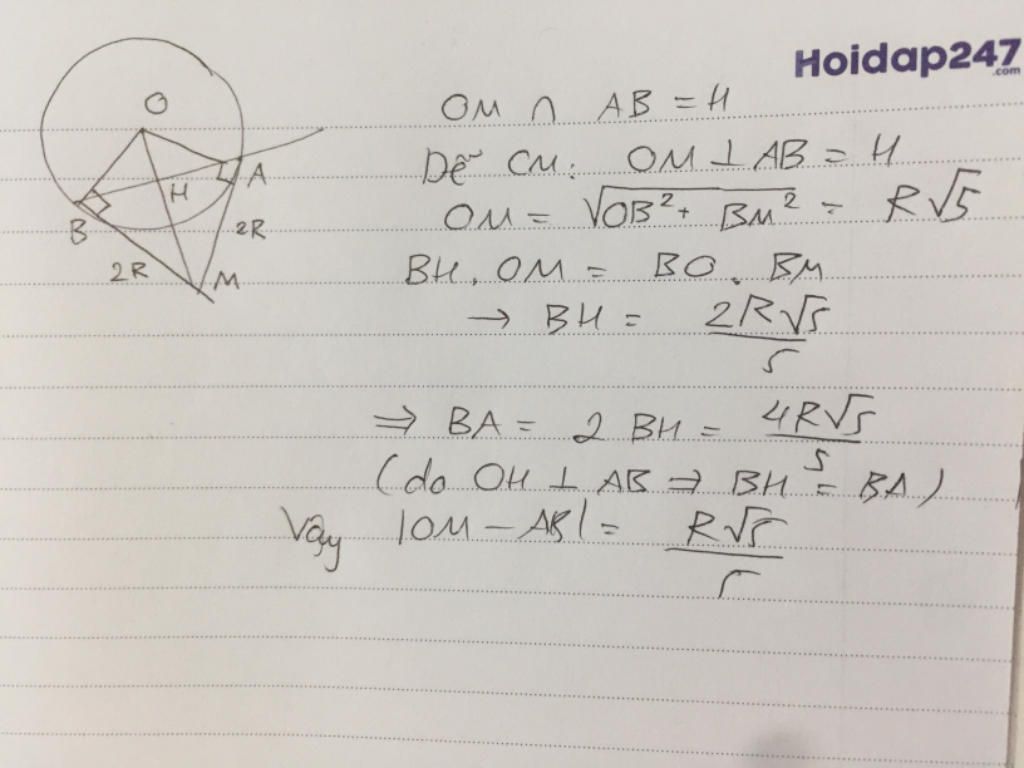 Hoidap247
.com
O
A
H
B
2R
2R
M
OM ∩ AB = H
Dễ CM: OM ⊥ AB = H
OM = √(OB² + BM²) = R√5
BH . OM = BO . BM
→ BH = 2R√5 / 5
⇒ BA = 2 BH = 4R√5 / 5
(do OH ⊥ AB ⇒ BH = BA)
Vậy |OM - AB| = R√5 / 5